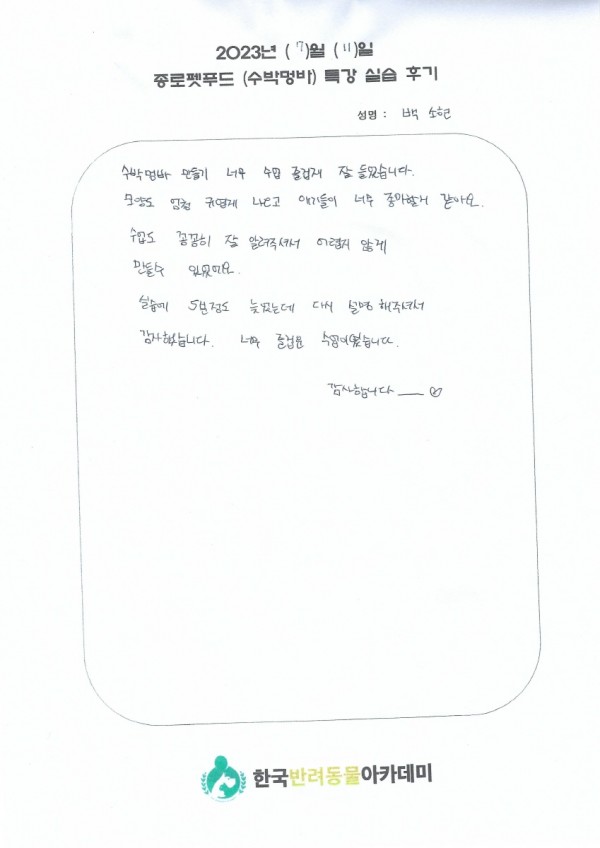 2023년 ( 7 )월 ( 11 )일
종로펫푸드 (수박멍바) 특강 실습 후기
성명 : 백 소현
수박멍바 만들기 너무 수업 즐겁게 잘 들었습니다.
모양도 엄청 귀엽게 나오고 애기들이 너무 좋아할거 같아요.
수업도 꼼꼼히 잘 알려주셔서 어렵지 않게
만들수 있었어요.
실습에 5분정도 늦었는데 다시 설명 해주셔서
감사했습니다. 너무 즐거운 수업이었습니다.
감사합니다 ―♡
한국반려동물아카데미